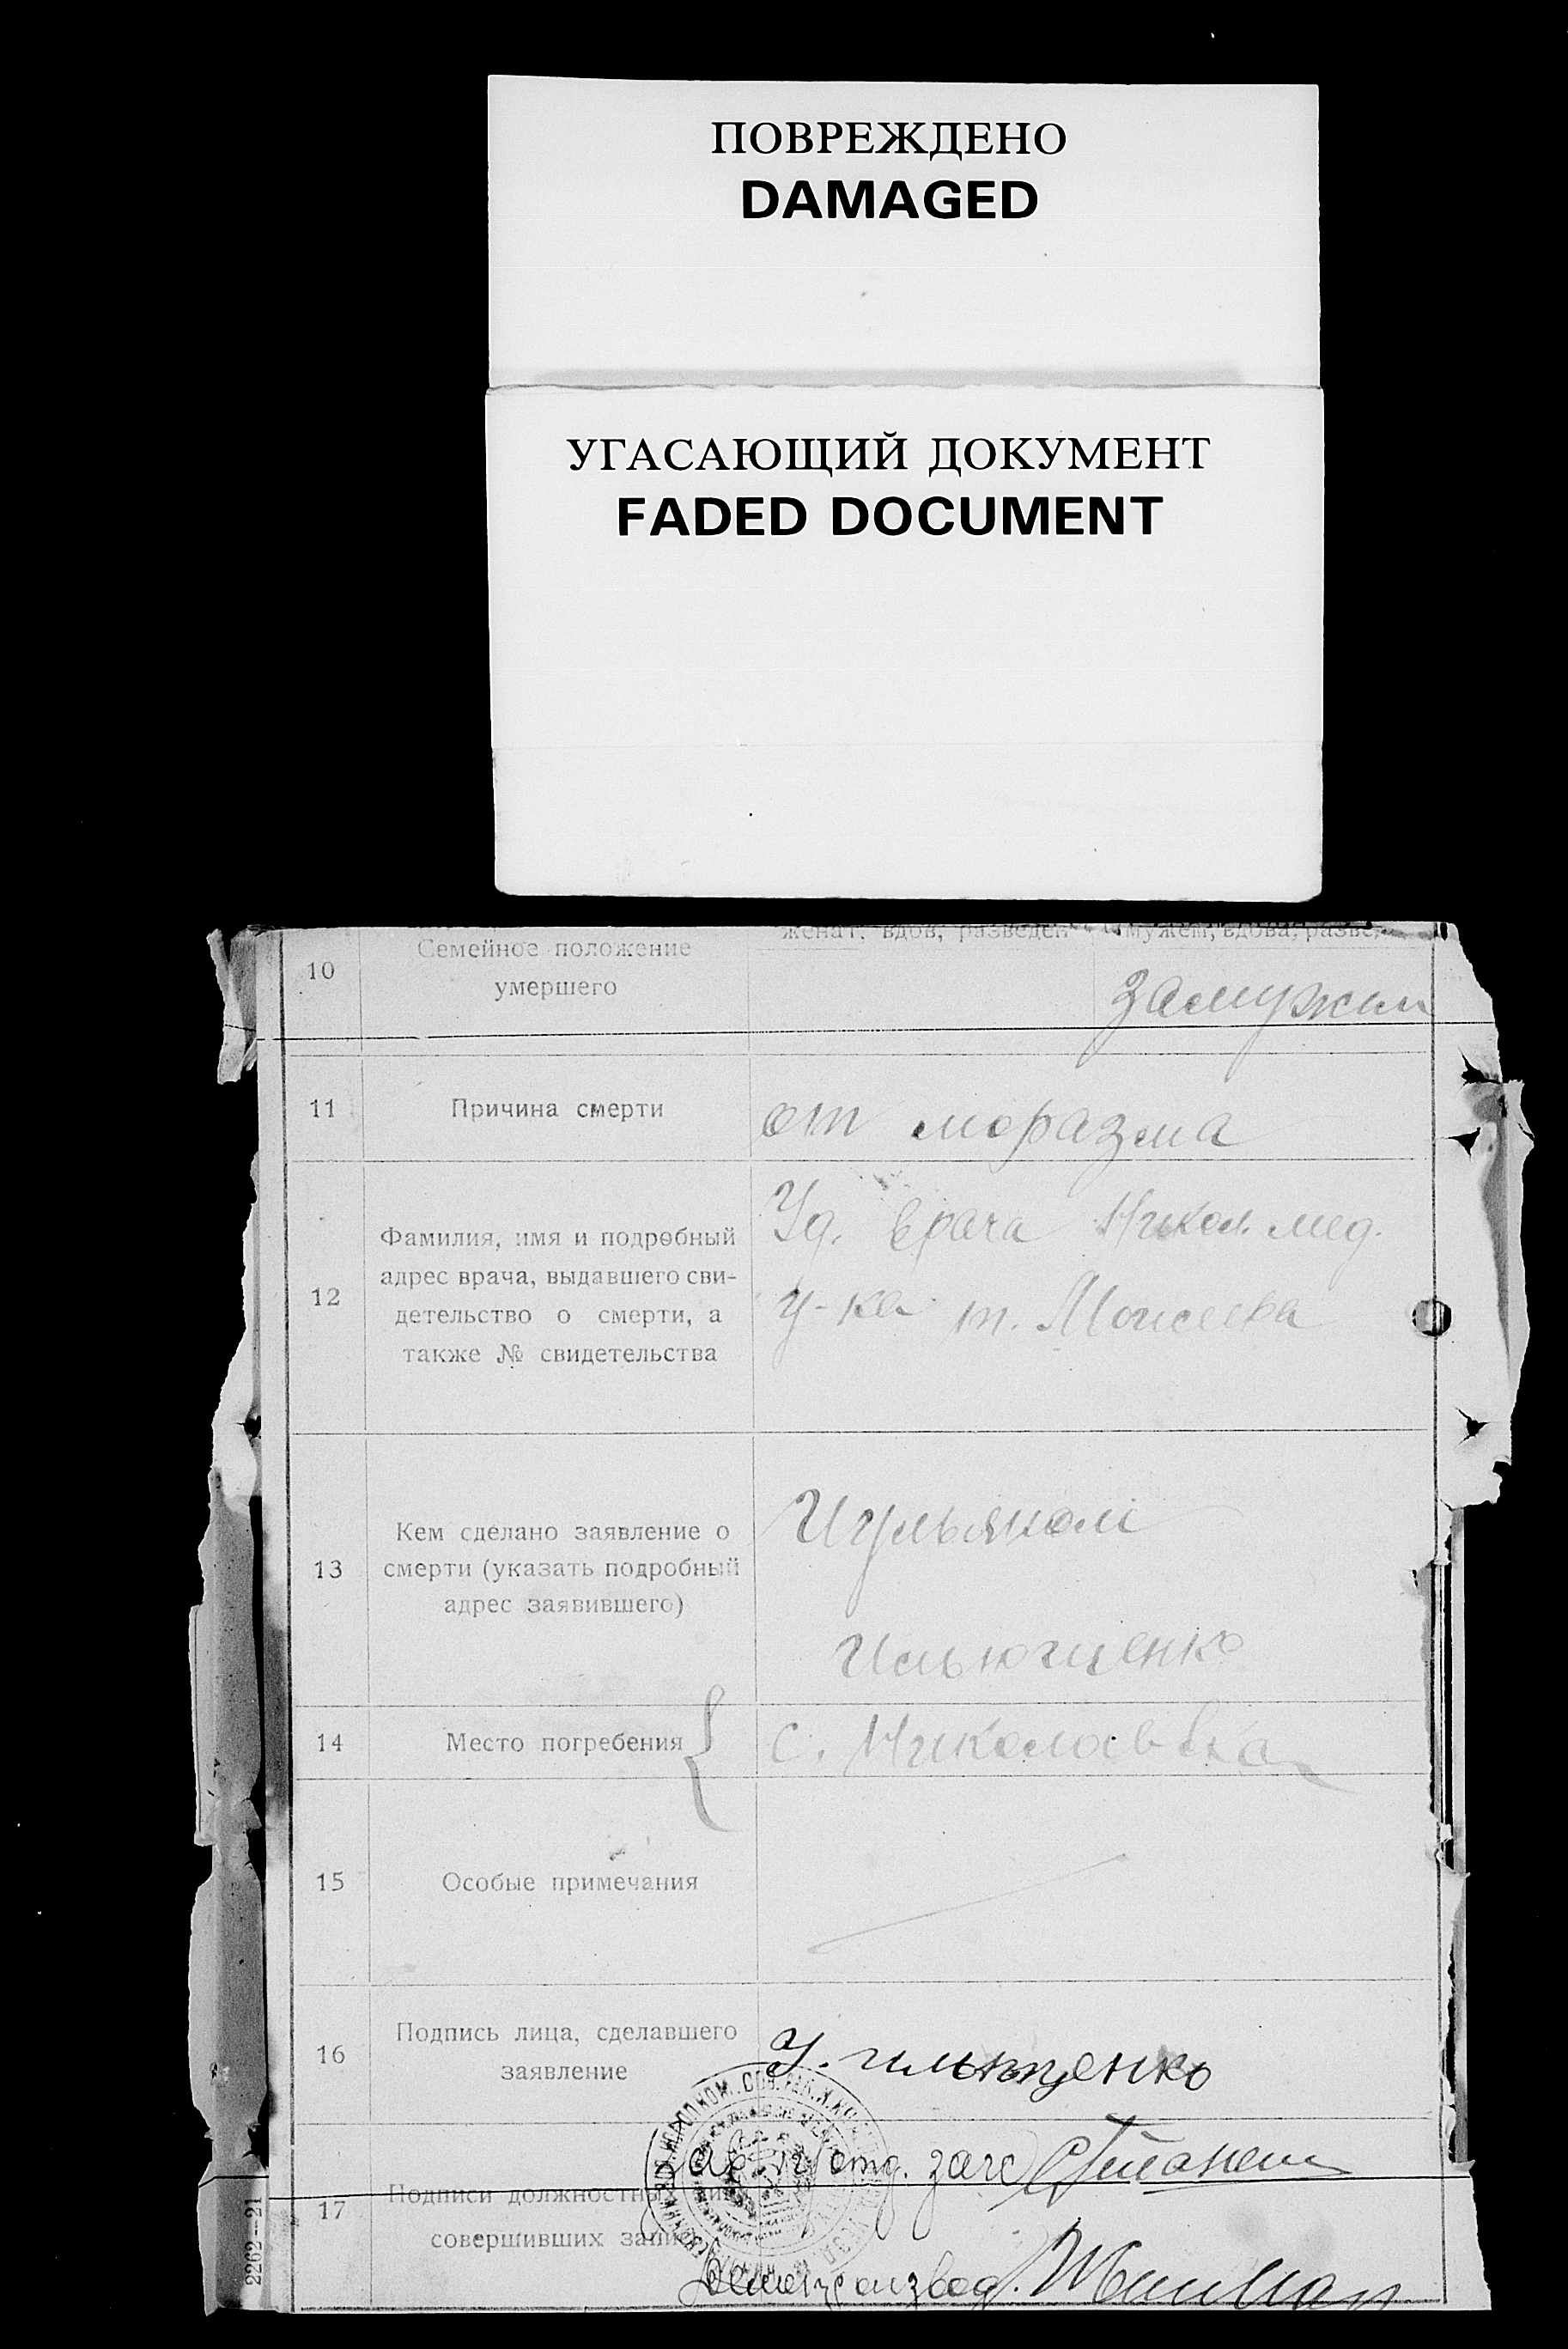 ПОВРЕЖДЕНО
DAMAGED
УГАСАЮЩИЙ ДОКУМЕНТ
FADED DOCUMENT
10
Семейное положение
умершего
женат, вдов, разведен
мужем, вдова, разве
замужем
11
Причина смерти
от моразма
12
Фамилия, имя и подробный
адрес врача, выдавшего сви-
детельство о смерти, а
также № свидетельства
Уд. врача Никол. мед.
у-ка т. Моисеева
13
Кем сделано заявление о
смерти (указать подробный
адрес заявившего)
Ильющенко
14
Место погребения
с. Николаевка
15
Особые примечания
16
Подпись лица, сделавшего
заявление
У. ильющенко
17
Подписи должностных лиц
совершивших запись
отд. загс
Делопроизвод.
2262—21